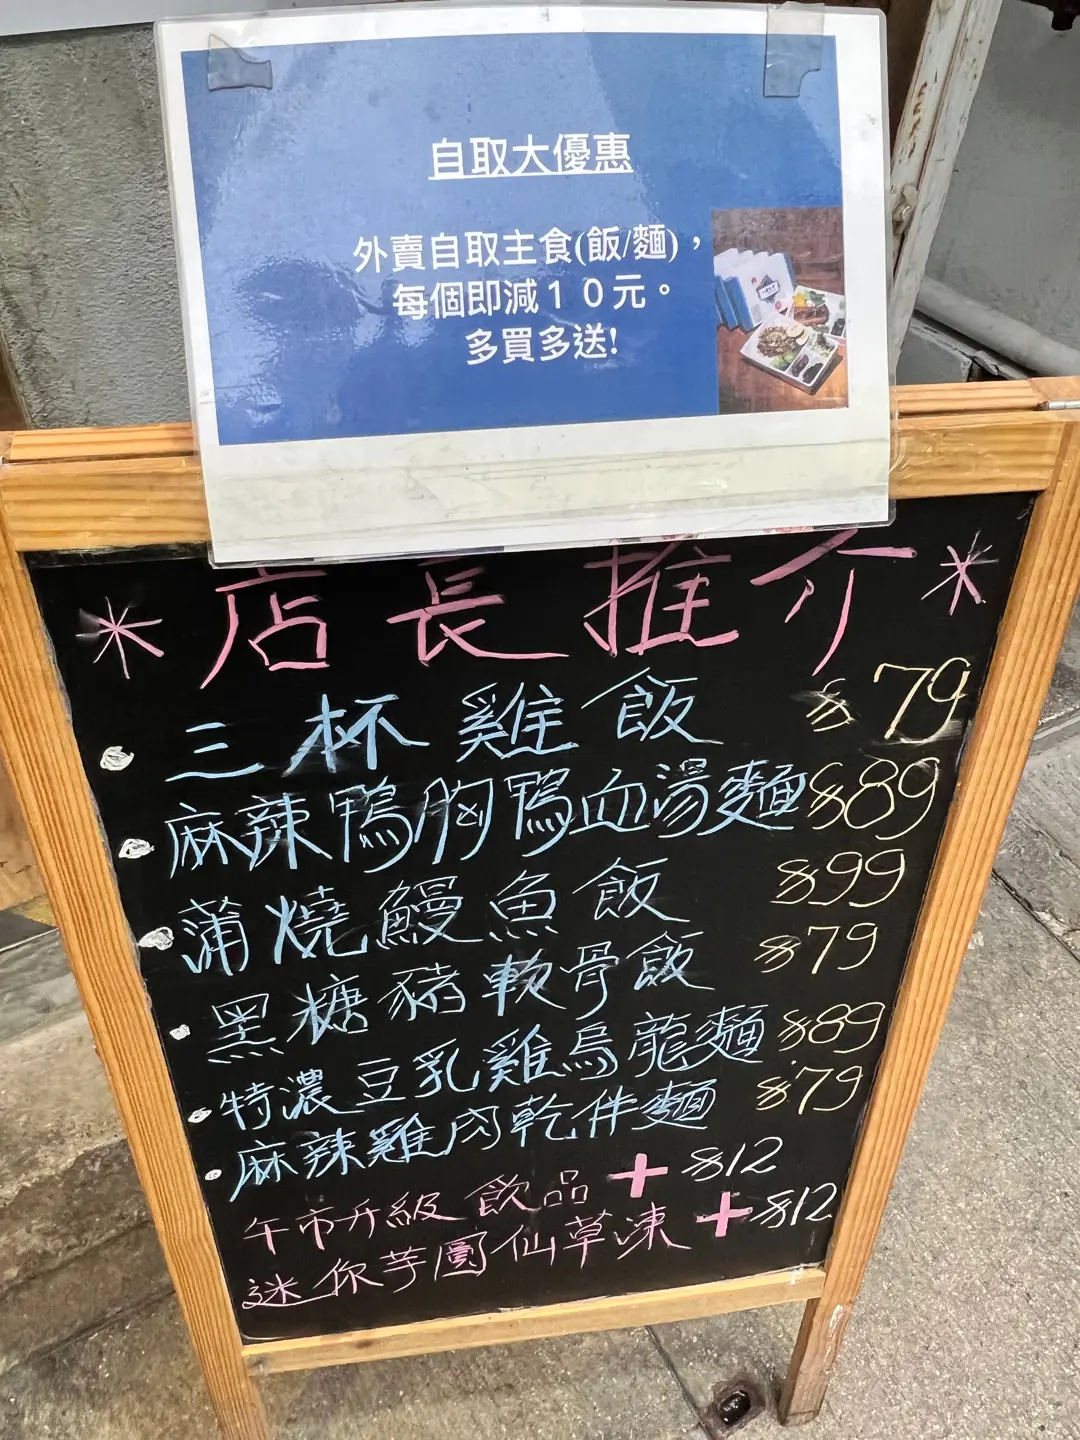 自取大優惠
外賣自取主食(飯/麵)，
每個即減１０元。
多買多送!
*店長推介*
三杯雞飯 $79
麻辣鴨胸鴨血湯麵 $89
蒲燒鰻魚飯 $99
黑糖豬軟骨飯 $79
特濃豆乳雞烏龍麵 $89
麻辣雞肉乾伴麵 $79
午市升級 飲品 + $12
迷你芋圓仙草凍 + $12